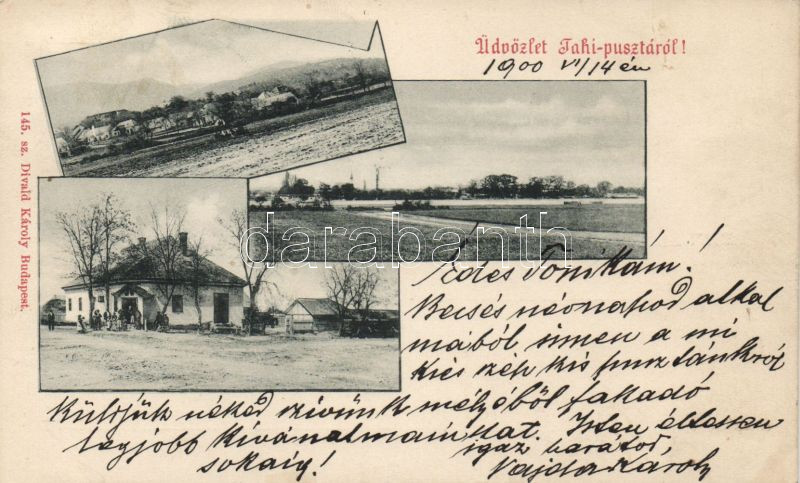 Üdvözlet Tahi-pusztáról!
1900 VI/14 én
145. sz. Divald Károly Budapest.
darabanth
Édes Tonikám!
Becsés névnapod alkal
mából innen a mi
kiés szép kis pusztánkról
Küldjük néked szívünk mélyéből fakadó
legjobb kívánalmainkat. Isten éltessen
sokáig! igaz barátod,
Vajda Károly